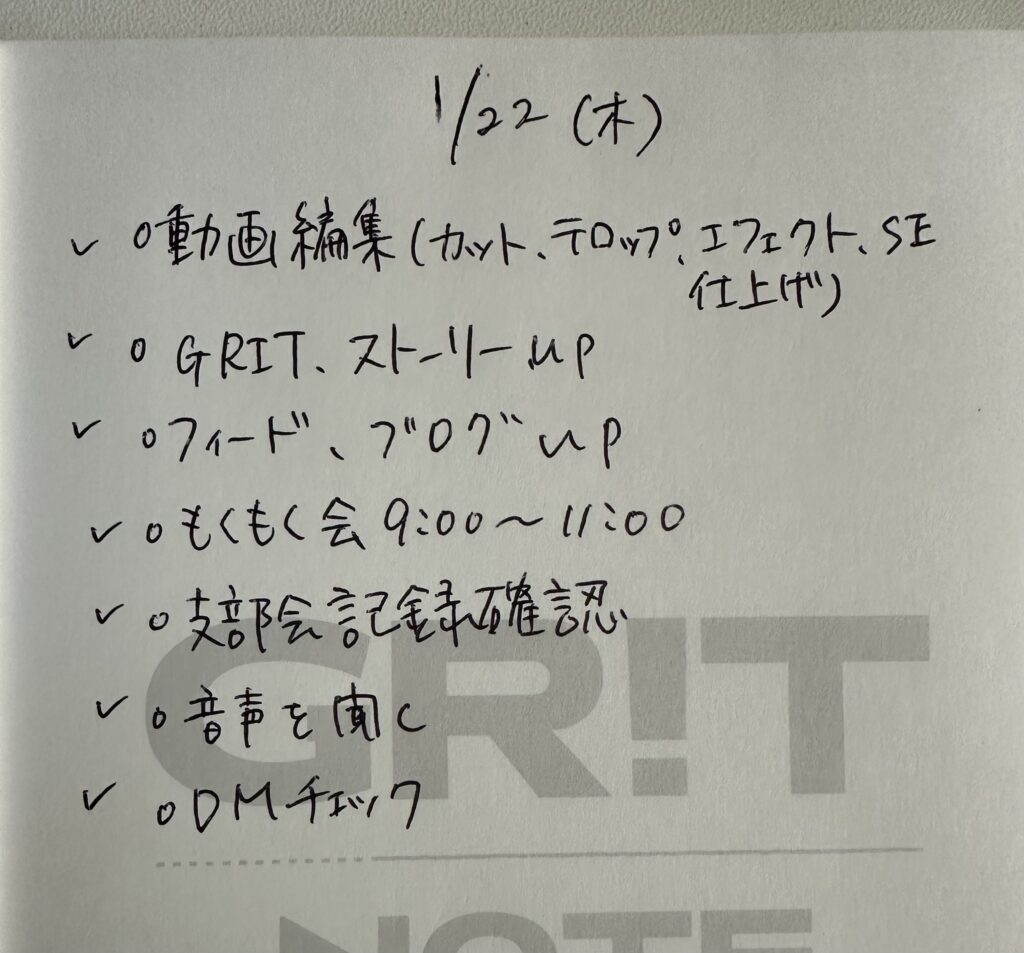 1/22 (木)
✓ o動画編集(カット、テロップ、エフェクト、SE
仕上げ)
✓ o GRIT、ストーリーup
✓ oフィード、ブログup
✓ oもくもく会 9:00〜11:00
✓ o支部会記録確認
✓ o音声を聞く
✓ oDMチェック
GR!T
NOTE